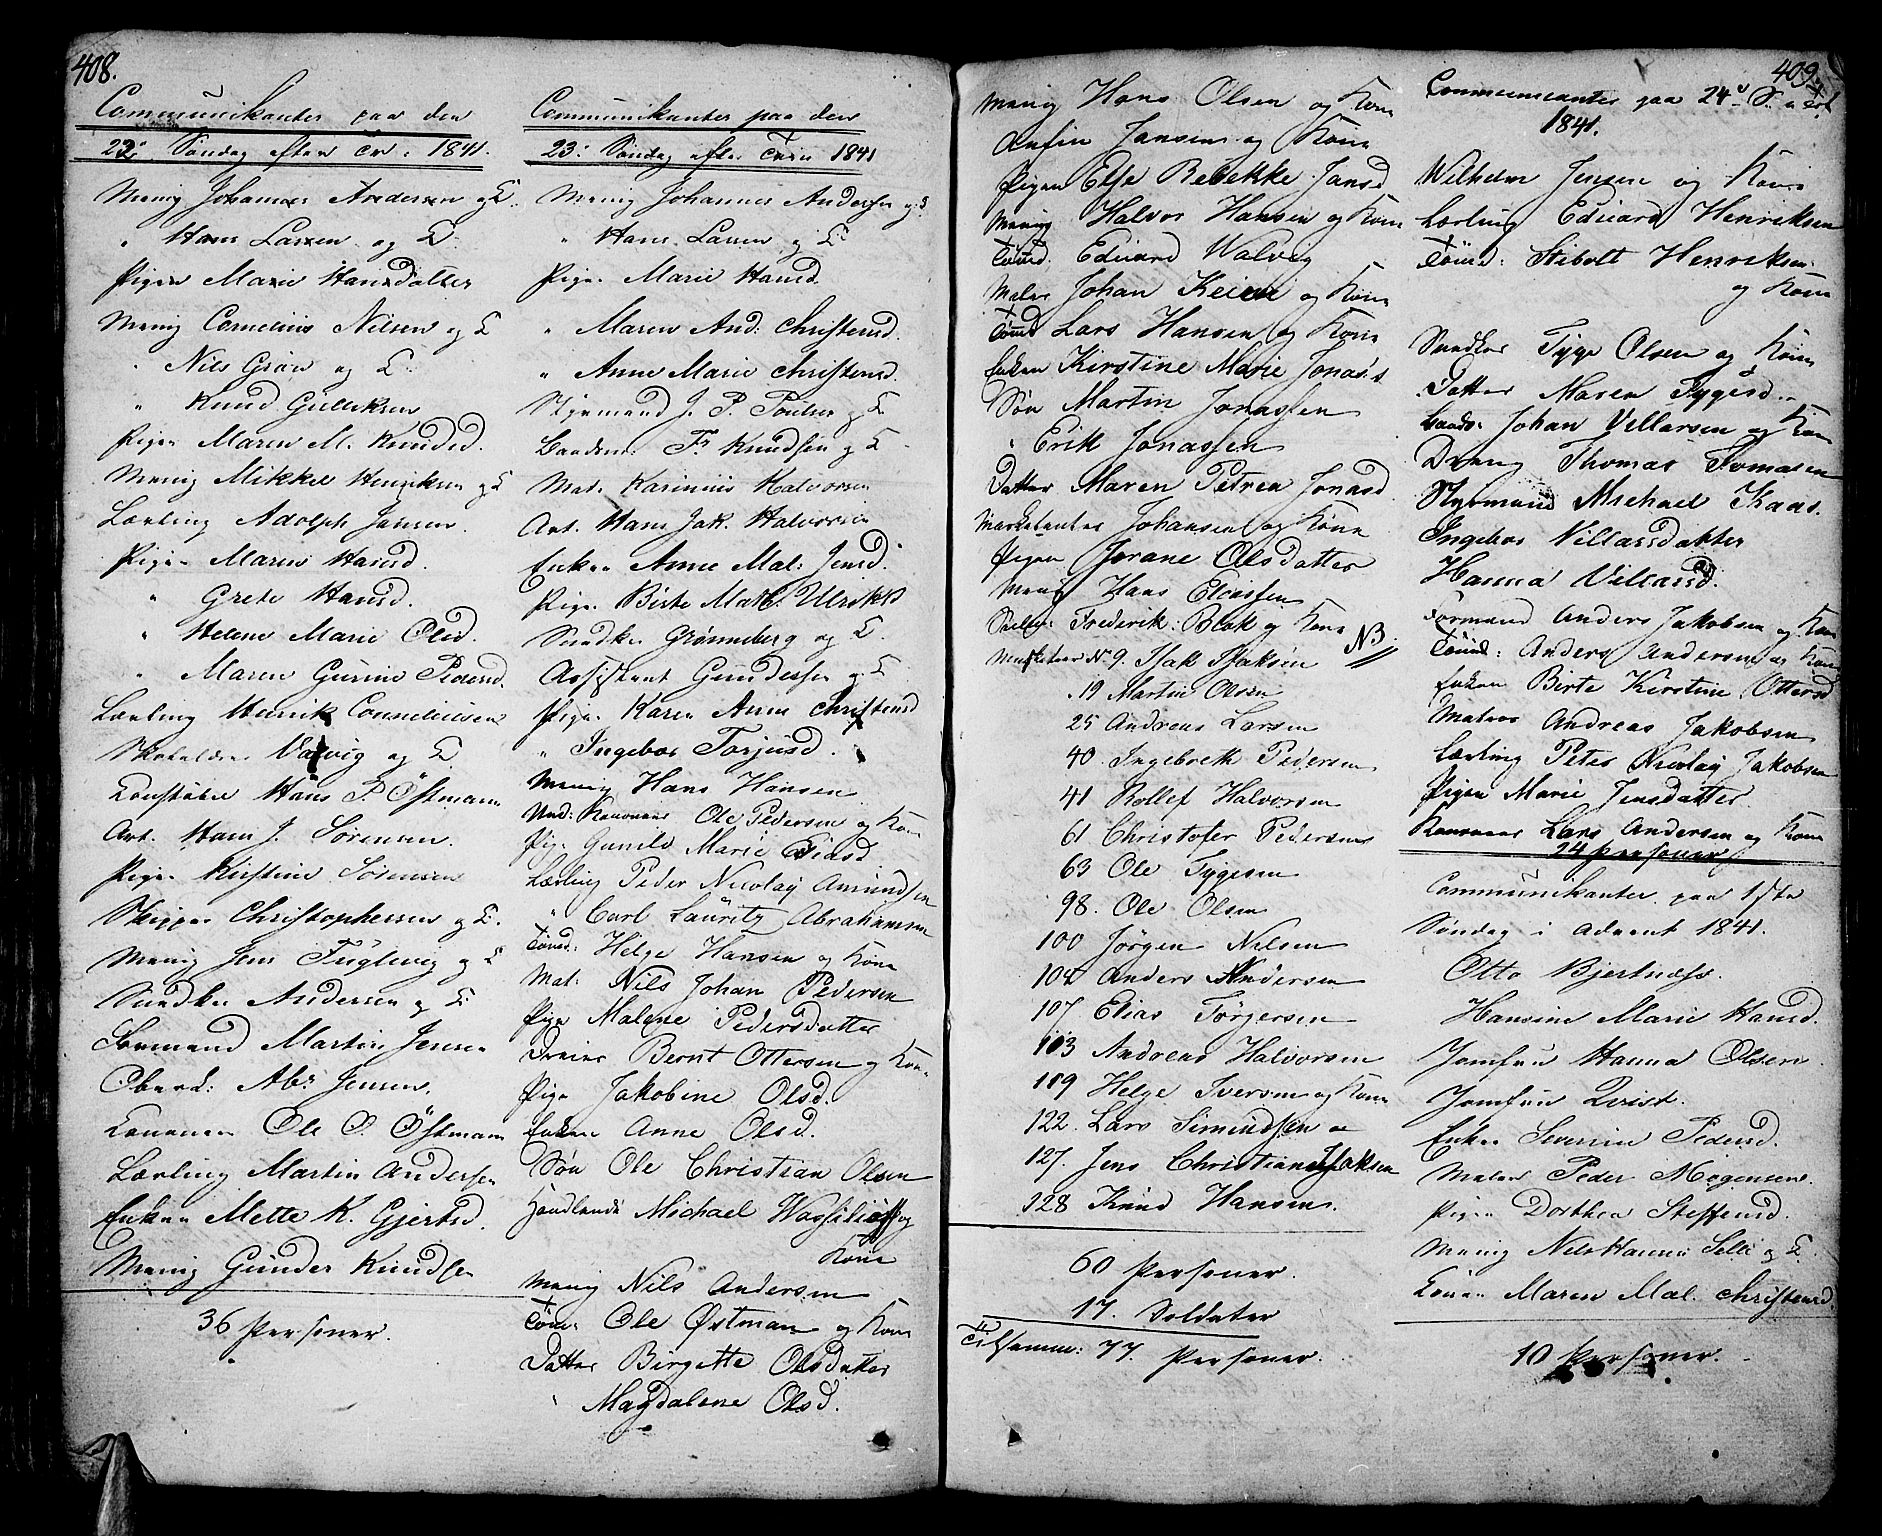 408.
Communikanter paa den
22: Søndag efter Tr. 1841.
Menig Johannes Andersen og K.
" Hans Larsen og K.
Pigen Marie Hansdatter
Menig Cornelius Nilsen og K
" Nils Grøn og K.
" Knud Gulliksen
Pigen Maren M. Knudsd.
Menig Mikkel Henriksen og K
Lærling Adolph Jansen.
Pigen Maren Hansd.
" Grete Hansd.
" Helene Marie Olsd.
" Maren Gurine Pedersd.
Lærling Henrik Corneliusen
Valvig og K.
Hans P. Østmann
Art. Hans J. Sørensen.
Pigen Kirstine Sørensen
Skipper Christophersen og K.
Menig Jens Fuglevig og K
Snedker Andersen og K.
Formand Martin Jensen
Oberd: Abr. Jensen.
Ole P. Østmann
Lærling Martin Andersen
Enken Mette K. Gjertsd.
Menig Gunder Knudsen
36 Personer.
Communikanter paa den
23: Søndag efter Trin 1841
Menig Johannes Andersen og K
" Hans Larsen og K.
Pigen Marie Hansd.
" Maren And: Christensd.
" Anne Marie Christensd.
Styrmand J. P. Poulsen og K
Fr. Knudsen og K
Mat. Karinius Halvorsen
Art. Hans Jak. Halvorsen
Enken Anne Mal: Jensd.
Pigen Birte Mart. Ulrikk
Snedker Grønneberg og K.
Assistent Gundersen og K
Pigen Karen Anne Christensd
" Ingebor Torjusd.
Menig Hans Hansen
Und: Kanoneer Ole Pedersen og Kone
Pige Gunild Marie
Lærling Peder Nicolay Amundsen
" Carl Lauritz Abrahamsen
Tømd: Helge Hansen og Kone
Mat: Nils Johan Pedersen
Pige Malene Pedersdatter
Dreier Bernt Ottersen og Kone
Pige Jakobine Olsd.
Enken Anne Olsd.
Søn Ole Christian Olsen
Handlende Michael Wassilieff og
Kone
Menig Nils Andersen
Tøm: Ole Østman og Kone
Datter Birgette Olsdatter
" Magdalene Olsd.
409.
Menig Hans Olsen og Kone
Anfin Jansen og Kone
Pigen Else Rebekke Jansd
Menig Halvor Hansen og Kone
Tømd. Eduard Walvig
Maler Johan Keim og Kone
Tømd Lars Hansen og Kone
Enken Kirstine Marie Jonasd.
Søn Martin Jonassen
" Erik Jonassen
Datter Maren Petrea Jonasd
Marketenter Johansen og Kone
Pigen Jorane Olsdatter
Menig Hans Eliassen
Frederik Blok og Kone NB.
Musketeer No 9. Isak Isaksen
19 Martin Olsen
25 Andreas Larsen
40. Ingebreth Pedersen
41 Rollef Halvorsen
61 Christofer Pedersen
63 Ole Tygesen
98. Ole Olsen
100 Jørgen Nilsen
104 Anders Andersen
107 Elias Torgersen
113 Andreas Halvorsen
119 Helge Iversen og Kone
122. Lars Simundsen
127. Jens Christian Isaksen
128 Knud Hansen.
60 Personer.
17. Soldater
Tilsamm: 77. Personer.
Communicanter paa 24de S. e Tr.
1841.
Wilhelm Jensen og Kone
Lærling Eduard Henriksen
Tømd: Stibolt Henriksen
og Kone
Snedker Tyge Olsen og Kone
Datter Maren Tygesd.
Johan Villarsen og Kone
Dreng Thomas Tomasen
Styrmand Michael Kaas.
Ingebor Villarsdatter
Hanna Villarsd.
Formand Anders Jakobsen og Kone
Tømd: Anders Andersen og Kone
Enken Birte Kirstine Ottersd
Matros Andreas Jakobsen
Lærling Peter Nicolay Jakobsen
Pigen Marie Jensdatter.
Kanoneer Lars Andersen og Kone
24 Personer.
Communikanter paa 1ste
Søndag i Advent 1841.
Otto Bjertnæss.
Hansine Marie Hansd.
Jomfru Hanna Olsen
Jomfru Qvist.
Enken Severine Pedersd.
Maler Peder Mogensen.
Pigen Dorthea Steffensd.
Menig Nils Hansen og K.
Konen Maren Mal. Christensd.
10 Personer.